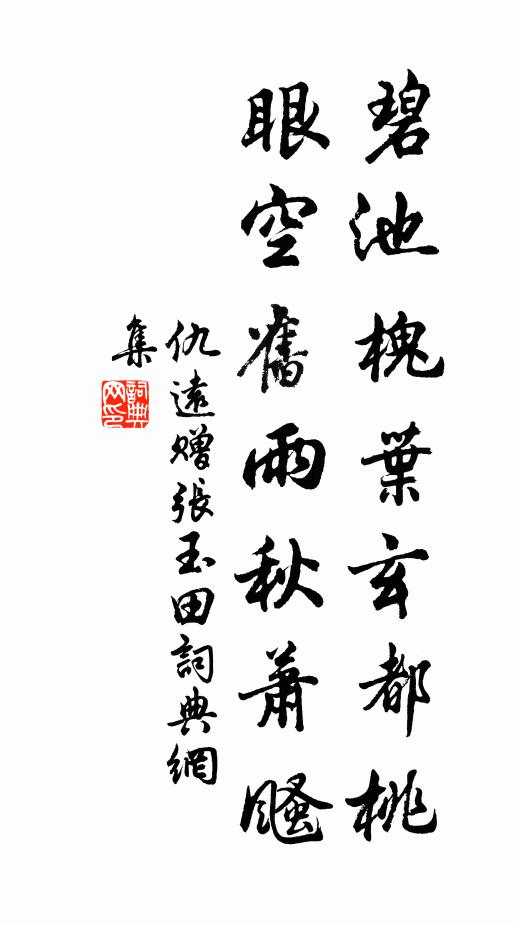 碧池槐葉玄都桃
眼空舊雨秋蕭颼
仇遠贈張玉田詞典網
集
詞典网印